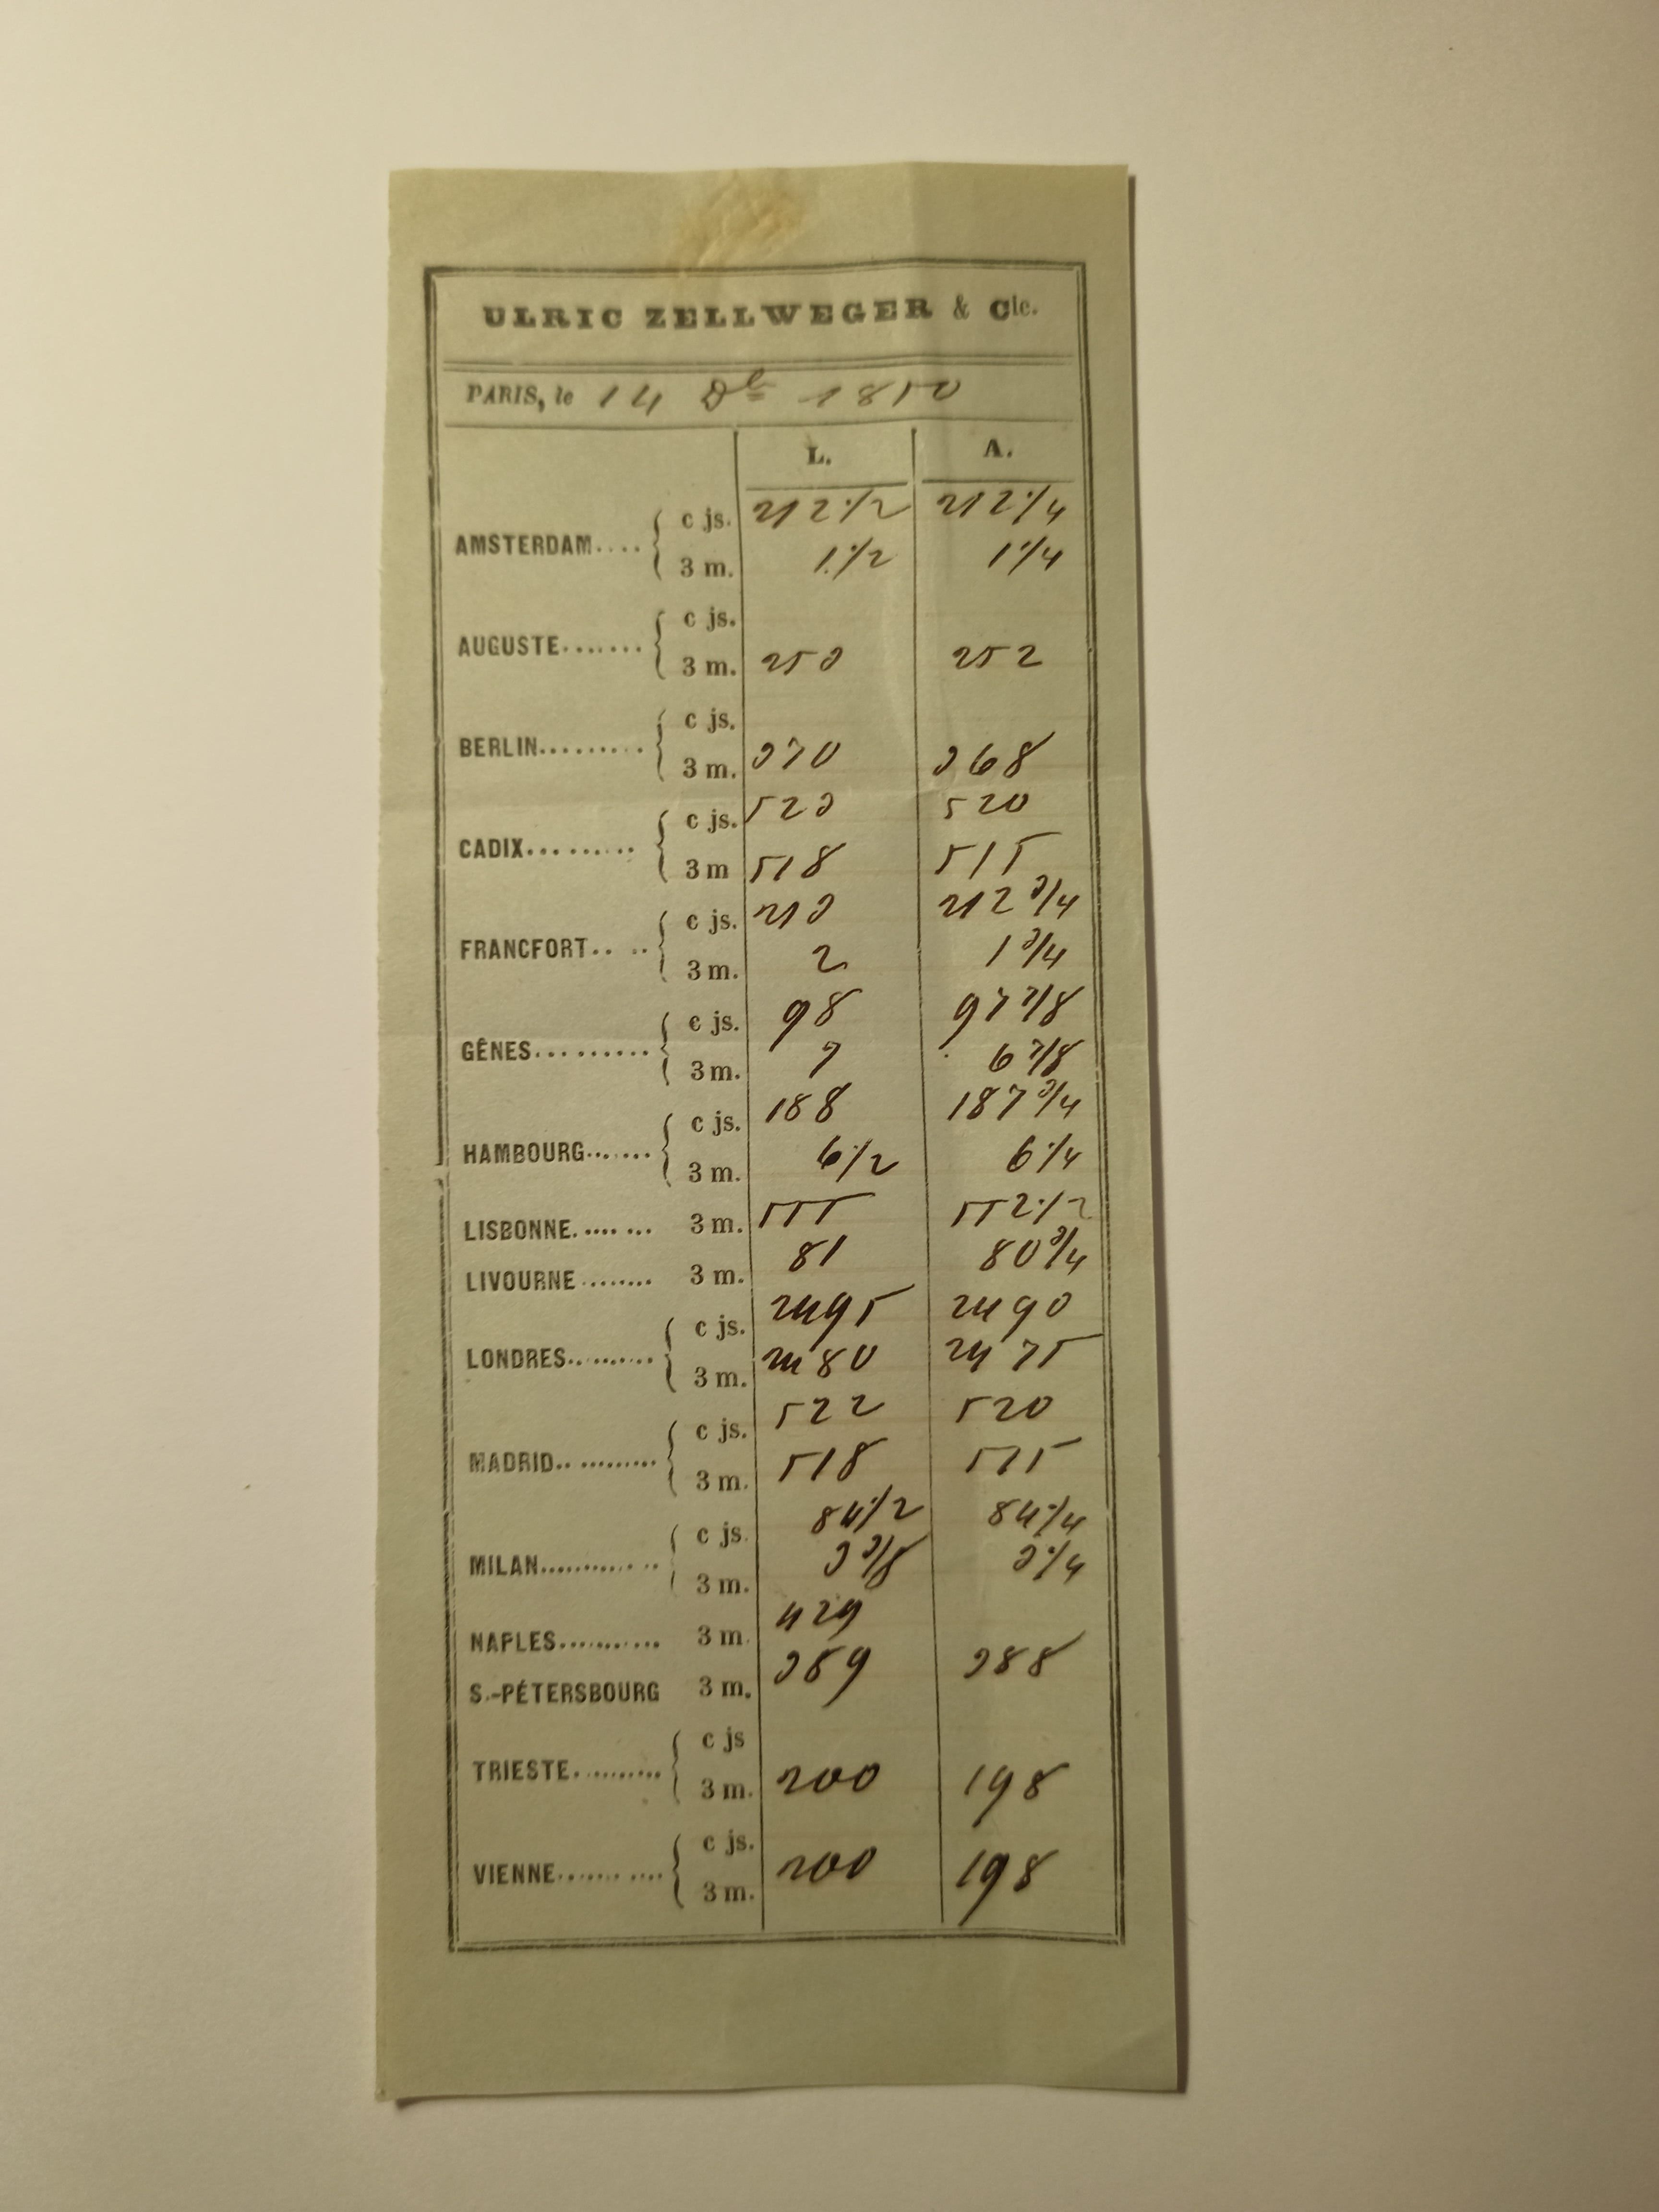 ULRIC ZELLWEGER & Cie.
PARIS, le 14 Dbe 1850
L. A.
AMSTERDAM.... c js. 212 1/2 212 1/4
3 m. 1 1/2 1 1/4
AUGUSTE....... c js.
3 m. 253 252
BERLIN......... c js.
3 m. 370 368
CADIX.......... c js. 523 520
3 m 518 515
FRANCFORT.. .. c js. 213 212 3/4
3 m. 2 1 3/4
GÊNES.......... c js. 98 97 7/8
3 m. 7 6 7/8
HAMBOURG....... c js. 188 187 3/4
3 m. 6 1/2 6 1/4
LISBONNE. .... ... 3 m. 555 552 1/2
LIVOURNE ........ 3 m. 81 80 3/4
LONDRES.......... c js. 2495 2490
3 m. 2480 2475
MADRID.. ......... c js. 522 520
3 m. 518 515
MILAN............ .. c js. 84 1/2 84 1/4
3 m. 3 3/8 3 1/4
NAPLES........... 3 m. 429
S.-PÉTERSBOURG 3 m. 389 388
TRIESTE.......... c js
3 m. 200 198
VIENNE....... .... c js. 200 198
3 m.